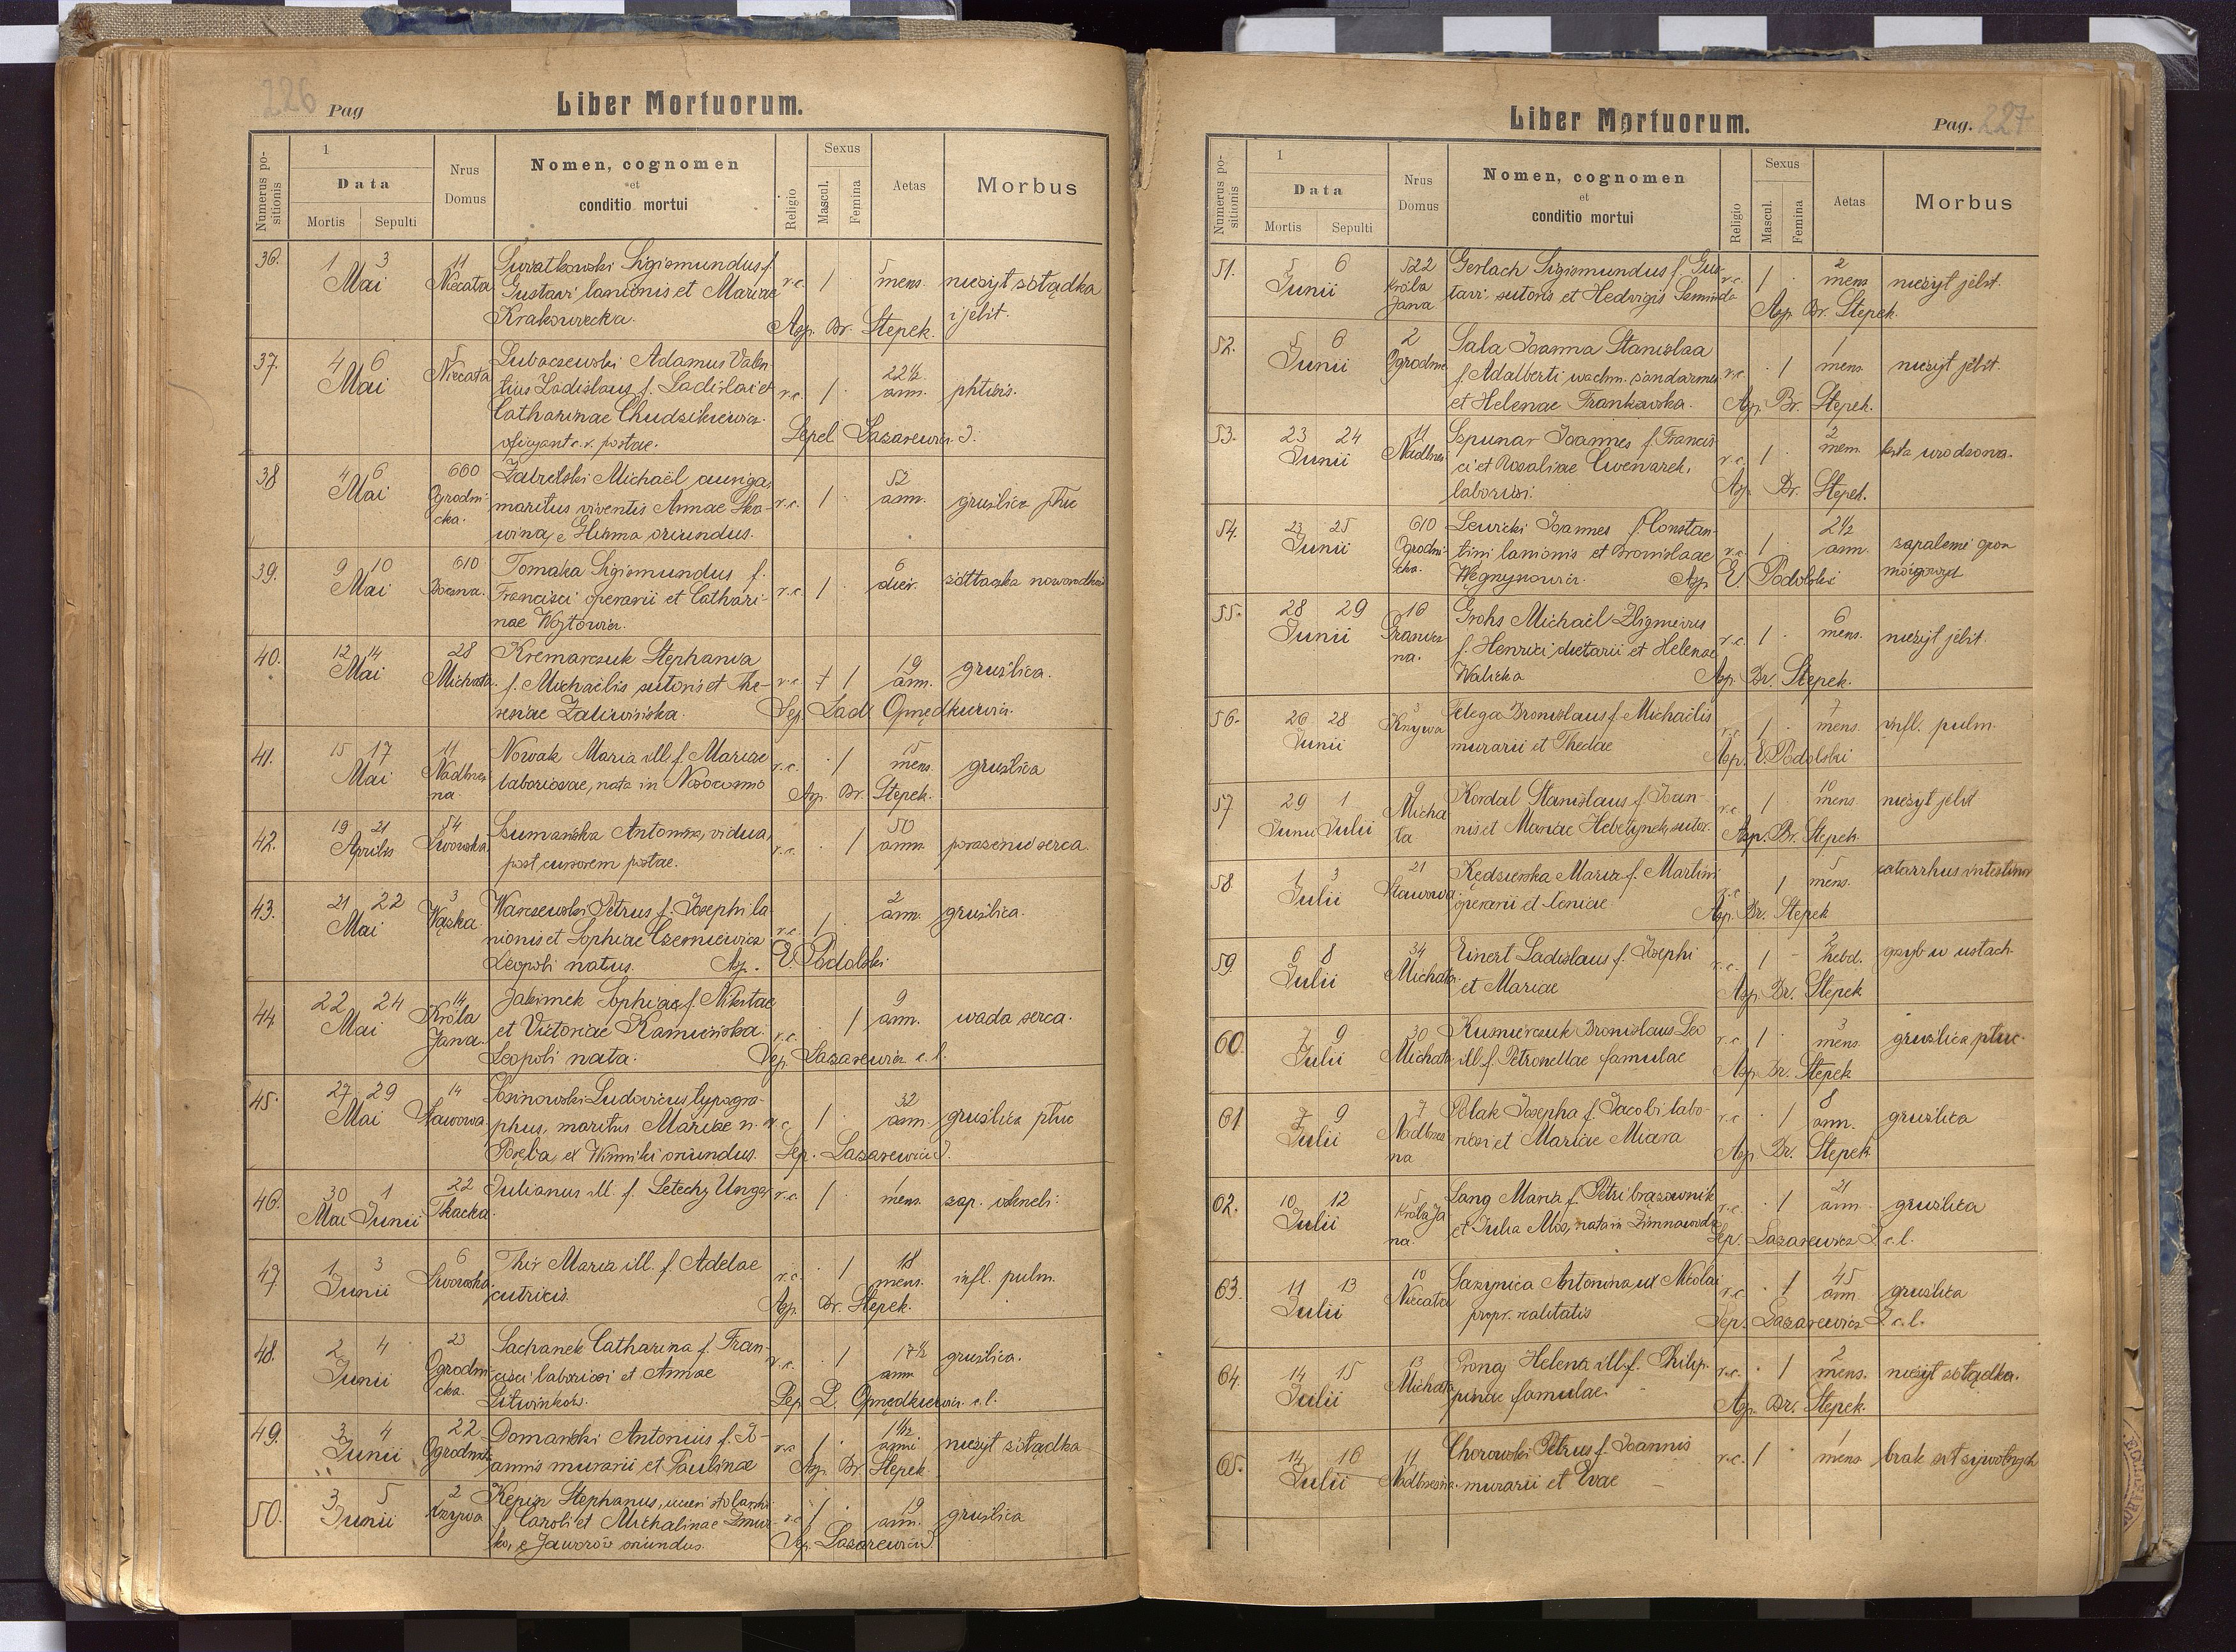 226 Pag
Liber Mortuorum.
Numerus positionis
1
Data
Mortis Sepulti
Nrus Domus
Nomen, cognomen
et
conditio mortui
Religio
Sexus
Mascul. Femina
Aetas
Morbus
36. 1 3 Mai 11 Niecała
Sigismundus f.
Gustavi lanionis et Mariae
Krakowiecka. r.c. 1 5 mens. nieżyt żołądka
i jelit.
Asp. Br. Stepek.
37. 4 6 Mai 5 Niecała
Lubaczewski Adamus Valen-
tius Ladislaus f. Ladislai et
Catharinae Chudzikiewicz. r.c. 1 22½ ann. phtisis.
oficyant c.r. postae.
Sepel Lazarewicz J.
38 4 6 Mai 660 Ogrodni-
cka.
Michaël auriga,
maritus viventis Annae Ska-
wina, e oriundus. r.c. 1 52 ann. gruźlica płuc
39. 9 10 Mai 610
Tomaka Sigismundus f.
Francisci operarii et Cathari-
nae Wojtowicz. r.c. 1 6 dier. żółtaczka
40. 12 14 Mai 28 Michała
Kremarczuk Stephania
f. Michaëlis sutoris et The-
resiae r.c. 1 19 ann. gruźlica.
Sep. Lad Opredkiewicz.
41. 15 17 Mai 11 Nadbrze-
na
Nowak Maria ill. f. Mariae
laboriosae, nata in r.c. 1 15 mens. gruźlica
Asp. Br. Stepek.
42. 19 21 Aprilis 54 Lwowska
Szumańska Antonina, vidua,
post cursorem postae. r.c. 1 50 ann. porażenie serca.
43. 21 22 Mai 3 Wązka
Warczewski Petrus f. Josephi la-
nionis et Sophiae Czerniewicz
Leopoli natus. r.c. 1 2 ann. gruźlica.
Asp. E. Podolski
44 22 24 Mai 14 Króla
Jana
Jakimek Sophia f. Nikitae
et Victoriae Kamińska.
Leopoli nata. r.c. 1 9 ann. wada serca.
Sep. Lazarewicz c.l.
45. 27 29 Mai 14 Stawowa
Ludovicus typogra-
phus, maritus Mariae n.
ex Winniki oriundus. r.c. 1 32 ann. gruźlica płuc
Sep. Lazarewicz J.
46. 30 Mai 1 Junii 22 Tkacka
Julianus ill. f. Letechy Unga r.c. 1 1 mens. zap. oskrzeli.
47 1 3 Junii 6 Lwowska
Thir Maria ill. f. Adelae
r.c. 1 18 mens. infl. pulm.
Asp. Br. Stepek.
48. 2 4 Junii 23 Ogrodni
cka.
Lachanek Catharina f. Fran
cisci laboriosi et Annae
r.c. 1 17½ ann. gruźlica.
Sep L. Opredkiewicz c.l.
49. 3 4 Junii 22 Ogrodnicka
Domański Antonius f. Jo-
annis murarii et Paulinae r.c. 1 1½ anni nieżyt żołądka
Asp. Br. Stepek.
50. 3 5 Junii 2 Krzywa
Kepin Stephanus,
f. Caroli et Michalinae
e Jaworów oriundus. r.c. 1 19 ann. gruźlica
Sep. Lazarewicz J.
Liber Mortuorum.
Pag. 227
Numerus positionis
1
Data
Mortis Sepulti
Nrus
Domus
Nomen, cognomen
et
conditio mortui
Religio
Sexus
Mascul. Femina
Aetas
Morbus
51. 5 6 Junii 522 Króla
Jana
Gerlach Sigismundus f. Gus-
tavi, sutoris et Hedvigis r.c. 1 2 mens nieżyt jelit.
Asp. Br. Stepek.
52. 5 6 Junii 2 Ogrodni
Sala Joanna Stanislaa
f. Adalberti wachm. żandarmer
et Helenae Frankowska. r.c. 1 1 mens. nieżyt jelit.
Asp. Br. Stepek.
53. 23 24 Junii 11 Nadbrze
Szpunar Joannes f. Francis-
ci et Rosaliae Cwenarek,
laboriosi. r.c. 1 2 men.
Asp. Br. Stepek.
54. 23 25 Junii 610 Ogrodni-
cka.
Lewicki Joannes f. Constan-
tini lanionis et Bronislaae
r.c. 1 2½ ann. zapalenie opon
mózgowych
Asp E. Podolski
55. 28 29 Junii 16
Grohs Michaël Zbigniew
f. Henrici dietarii et Helenae
Walicka r.c. 1 6 mens. nieżyt jelit.
Asp. Br. Stepek.
56. 26 28 Junii 3 Krzywa
Bronislaus f. Michaëlis
murarii et Theclae r.c. 1 7 mens. infl. pulm.
Asp. E. Podolski
57 29 Junii 1 Julii 9 Micha
ła
Kordal Stanislaus f. Joan-
nis et Mariae sutor. r.c. 1 10 mens. nieżyt jelit
Asp. Br. Stepek.
58. 1 3 Julii 21 Stawowa
Kędzierska Maria f. Martini
operarii et Xeniae r.c. 1 5 mens. catarrhus intestinor
Asp. Br. Stepek
59. 6 8 Julii 34 Michała
Einert Ladislaus f. Josephi
et Mariae r.c. 1 2 hebd. grzyb w ustach
Asp. Br. Stepek
60. 7 9 Julii 30 Michała
Kusnierczuk Bronislaus Leo
ill. f. Petronellae famulae r.c. 1 3 mens. gruźlica płuc.
Asp. Br. Stepek
61 7 9 Julii 7 Nadbrze
na
Polak Josepha f. Jacobi labo-
riosi et Mariae Miara r.c. 1 8 ann. gruźlica
Asp. Br. Stepek
62. 10 12 Julii 5 Króla Ja
na.
Lang Maria f. Petri brązownik
et Julia Mos, nata in Zimnawoda r.c. 1 21 ann. gruźlica
Sep. Lazarewicz J. c.l.
63. 11 13 Julii 10 Niecała
Antonina ux Nicolai
propr. realitatis r.c. 1 45 ann. gruźlica
Sep. Lazarewicz J. c.l.
64. 14 15 Julii 13 Michała
Pronaj Helena ill. f. Philip-
pinae famulae. r.c. 1 2 mens. nieżyt żołądka.
Asp. Br. Stepek.
65. 14 16 Julii 11 Nadbrzeżna
Chorowski Petrus f. Joannis
murarii et Evae r.c. 1 1 mens brak sił żywotnych